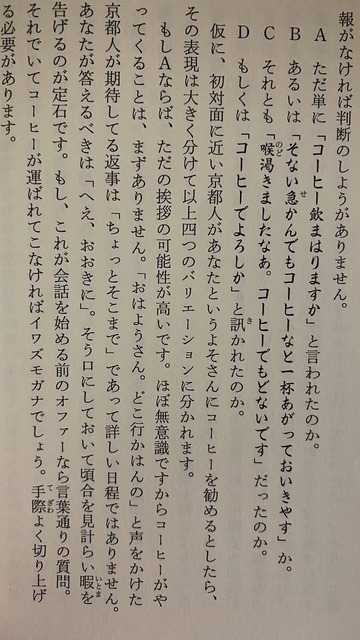 報がなければ判断のしようがありません。
A　ただ単に「コーヒー飲まはりますか」と言われたのか。
B　あるいは「そない急かんでもコーヒーなと一杯あがっておいきやす」か。
C　それとも「喉渇きましたなあ。コーヒーでもどないです」だったのか。
D　もしくは「コーヒーでよろしか」と訊かれたのか。
仮に、初対面に近い京都人があなたというよそさんにコーヒーを勧めるとしたら、
その表現は大きく分けて以上四つのバリエーションに分かれます。
もしAならば、ただの挨拶の可能性が高いです。ほぼ無意識ですからコーヒーがや
ってくることは、まずありません。「おはようさん。どこ行かはんの」と声をかけた
京都人が期待してる返事は「ちょっとそこまで」であって詳しい日程ではありません。
あなたが答えるべきは「へえ、おおきに」。そう口にしておいて頃合を見計らい暇を
告げるのが定石です。もし、これが会話を始める前のオファーなら言葉通りの質問。
それでいてコーヒーが運ばれてこなければイワズモガナでしょう。手際よく切り上げ
る必要があります。